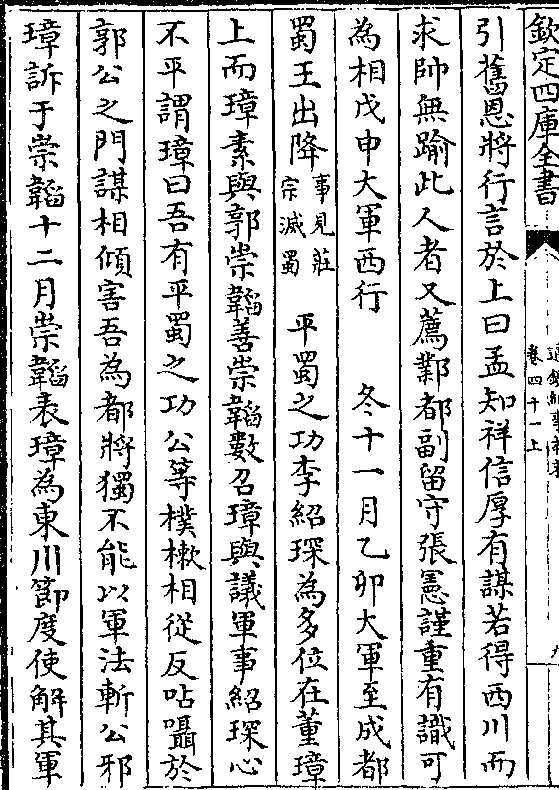 欽定四庫全書
卷四十一上
引舊恩將行言於上曰孟知祥信厚有謀若得西川而
求帥無踰此人者又薦鄴都副留守張憲謹重有識可
為相戊申大軍西行　冬十一月乙卯大軍至成都
蜀王出降事見莊宗滅蜀　平蜀之功李紹琛為多位在董璋
上而璋素與郭崇韜善崇韜數召璋與議軍事紹琛心
不平謂璋曰吾有平蜀之功公等樸樕相從反呫囁於
郭公之門謀相傾害吾為都將獨不能以軍法斬公邪
璋訴于崇韜十二月崇韜表璋為東川節度使解其軍